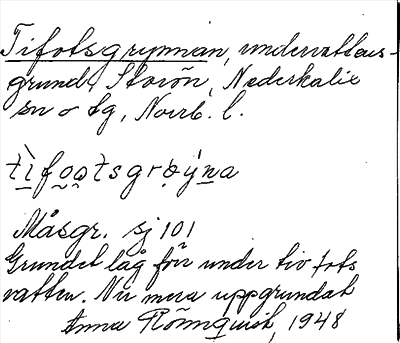 Tifotsgrynnan, undervattens-
grund, Storön, Nederkalix
sn o tg, Norrb. l.
tìfo̯o̯tsgrøýna
Måsgr. sj 101
Grundet låg förr under tio fots
vatten. Nu mera uppgrundat
Anna Rönnquist, 1948